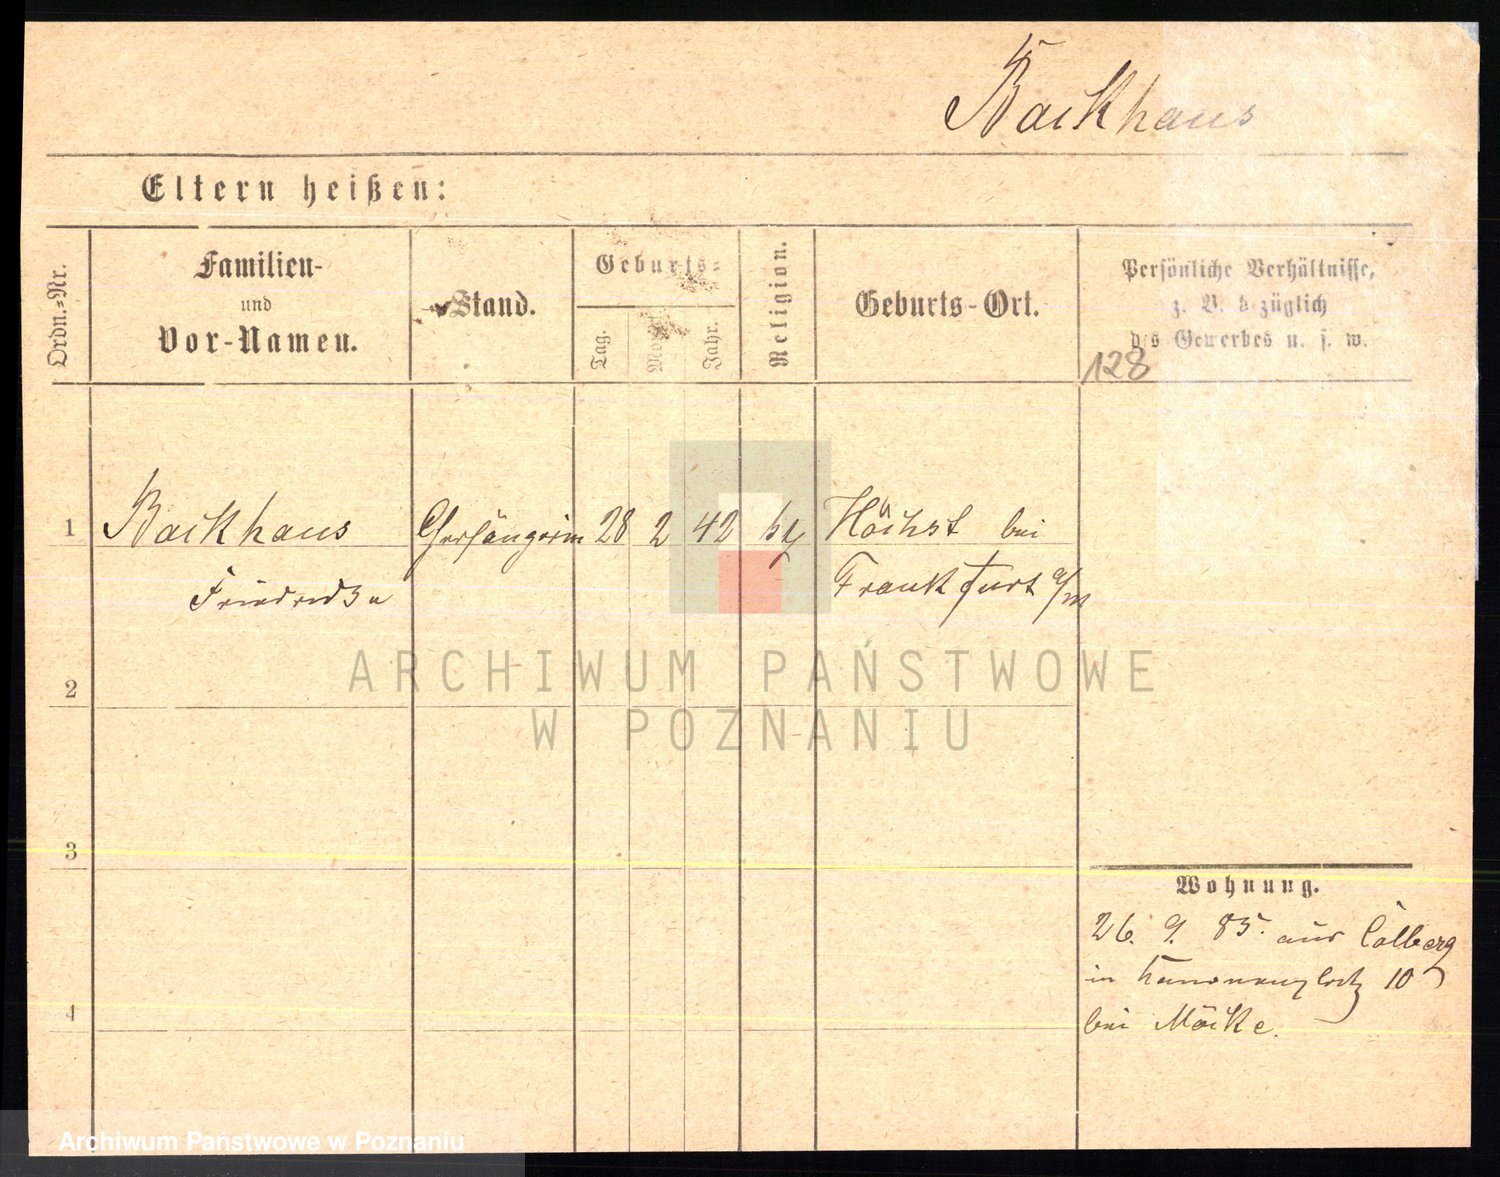 Backhaus
Eltern heißen:
Ordn.-Nr.
Familien-
und
Vor-Namen.
Stand.
Geburts-
Tag.
Jahr.
Religion.
Geburts-Ort.
Persönliche Verhältnisse,
z. B. bezüglich
des Gewerbes u. s. w.
128
1
Backhaus
28 2 42
Höchst bei
Frankfurt a/m
2
3
4
Wohnung.
26. 9. 85. aus Colberg
in Kanonenplatz 10
bei
ARCHIWUM PAŃSTWOWE
W POZNANIU
Archiwum Państwowe w Poznaniu